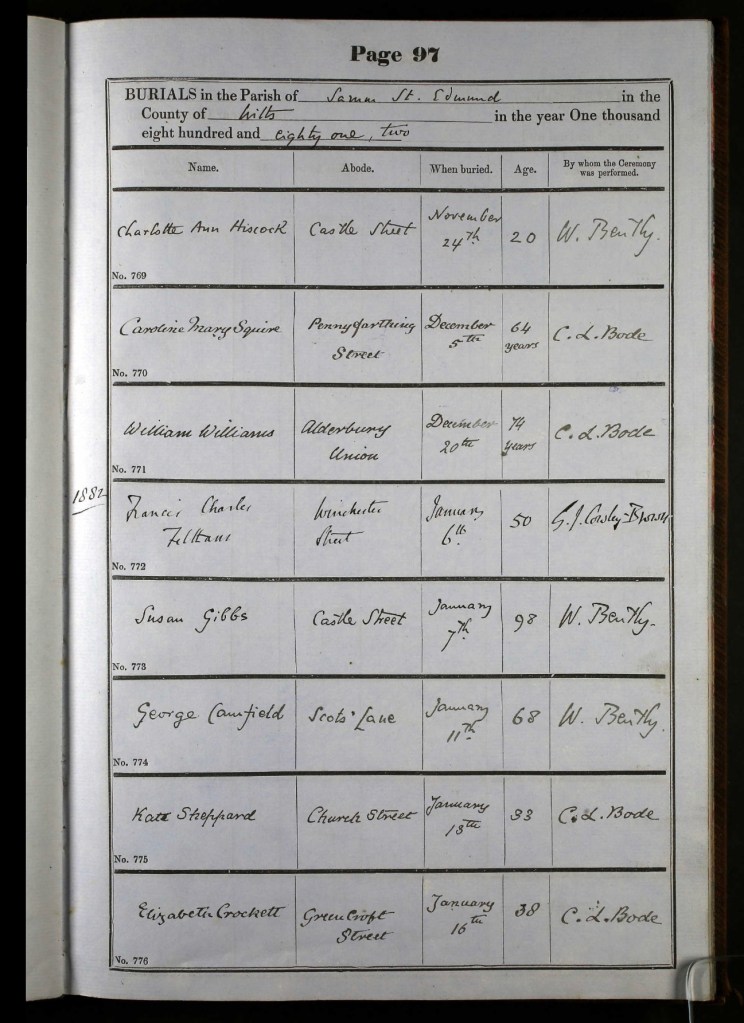 Page 97
BURIALS in the Parish of Sarum St. Edmund in the
County of Wilts in the year One thousand
eight hundred and eighty one, two
Name. Abode. When buried. Age. By whom the Ceremony was performed.
Charlotte Ann Hiscock Castle Street November 24th 20 W. Bently.
No. 769
Caroline Mary Squire Pennyfarthing Street December 5th 64 years C. L. Bode
No. 770
William Williams Alderbury Union December 20th 74 years C. L. Bode
No. 771
1882
Francis Charles Winchester Street January 6th 50 G. J.
No. 772
Susan Gibbs Castle Street January 7th 98 W. Bently.
No. 773
George Camfield Scots' Lane January 11th 68 W. Bently.
No. 774
Kate Sheppard Church Street January 13th 33 C. L. Bode
No. 775
Elizabeth Crockett Green Croft Street January 16th 38 C. L. Bode
No. 776